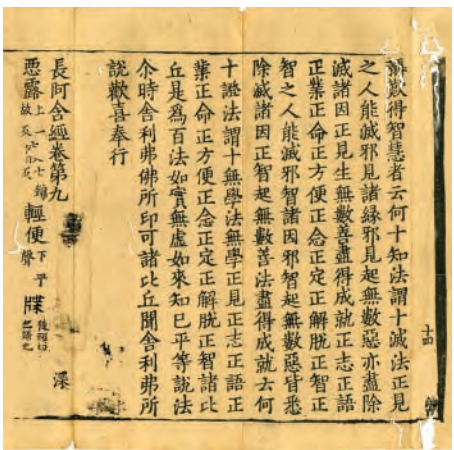 得智慧者云何十知法謂十滅法正見
之人能滅邪見諸緣邪見起無數惡亦盡除
滅諸因正見生無數善盡得成就正志正語
正業正命正方便正念正定正解脫正智正
智之人能滅邪智諸因邪智起無數惡皆悉
除滅諸因正智起無數善法盡得成就云何
十證法謂十無學法無學正見正志正語正
業正命正方便正念正定正解脫正智諸比
丘是爲百法如實無虛如來知已平等說法
尒時舍利弗佛所印可諸比丘聞舍利弗所
說歡喜奉行
長阿含經卷第九 深
惡露 輕便 下平聲 牒
十四